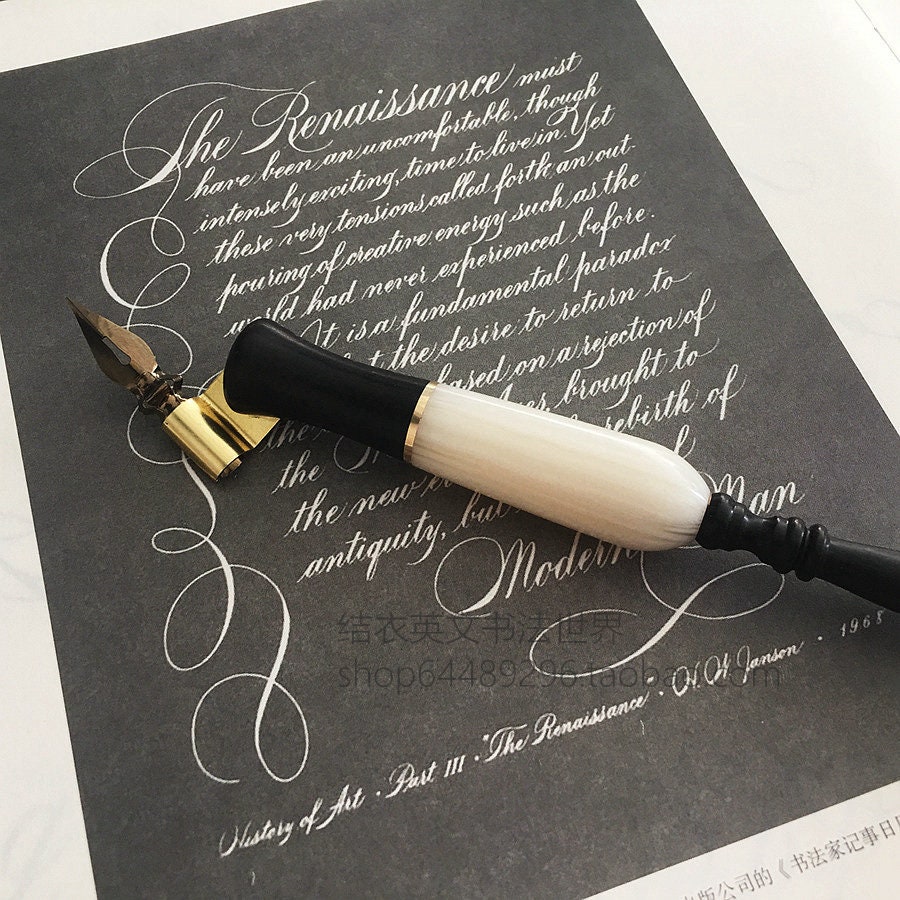 The Renaissance must
have been an uncomfortable, though
intensely exciting, time to live in. Yet
these very tensions called forth an out-
pouring of creative energy such as the
world had never experienced before.
It is a fundamental paradox
the desire to return to
based on a rejection of
brought to
the rebirth of
the
the new
antiquity, but
Modern Man
结衣英文书法世界
shop64489296.taobao.com
History of Art · Part III · "The Renaissance" · H. W. Janson · 1968
版公司的《书法家记事日